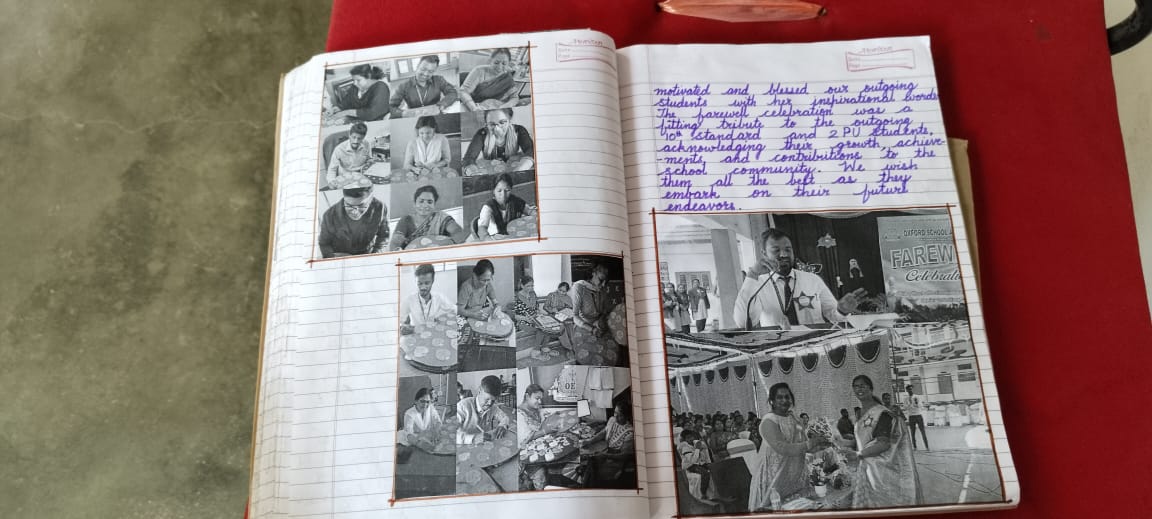 motivated and blessed our outgoing
students with her inspirational words
The farewell celebration was a
fitting tribute to the outgoing
10th standard and 2 PU students,
acknowledging their growth, achieve-
-ments, and contributions to the
school community. We wish
them all the best as they
embark on their future
endeavors.
OXFORD SCHOOL
FAREW
Celebrati